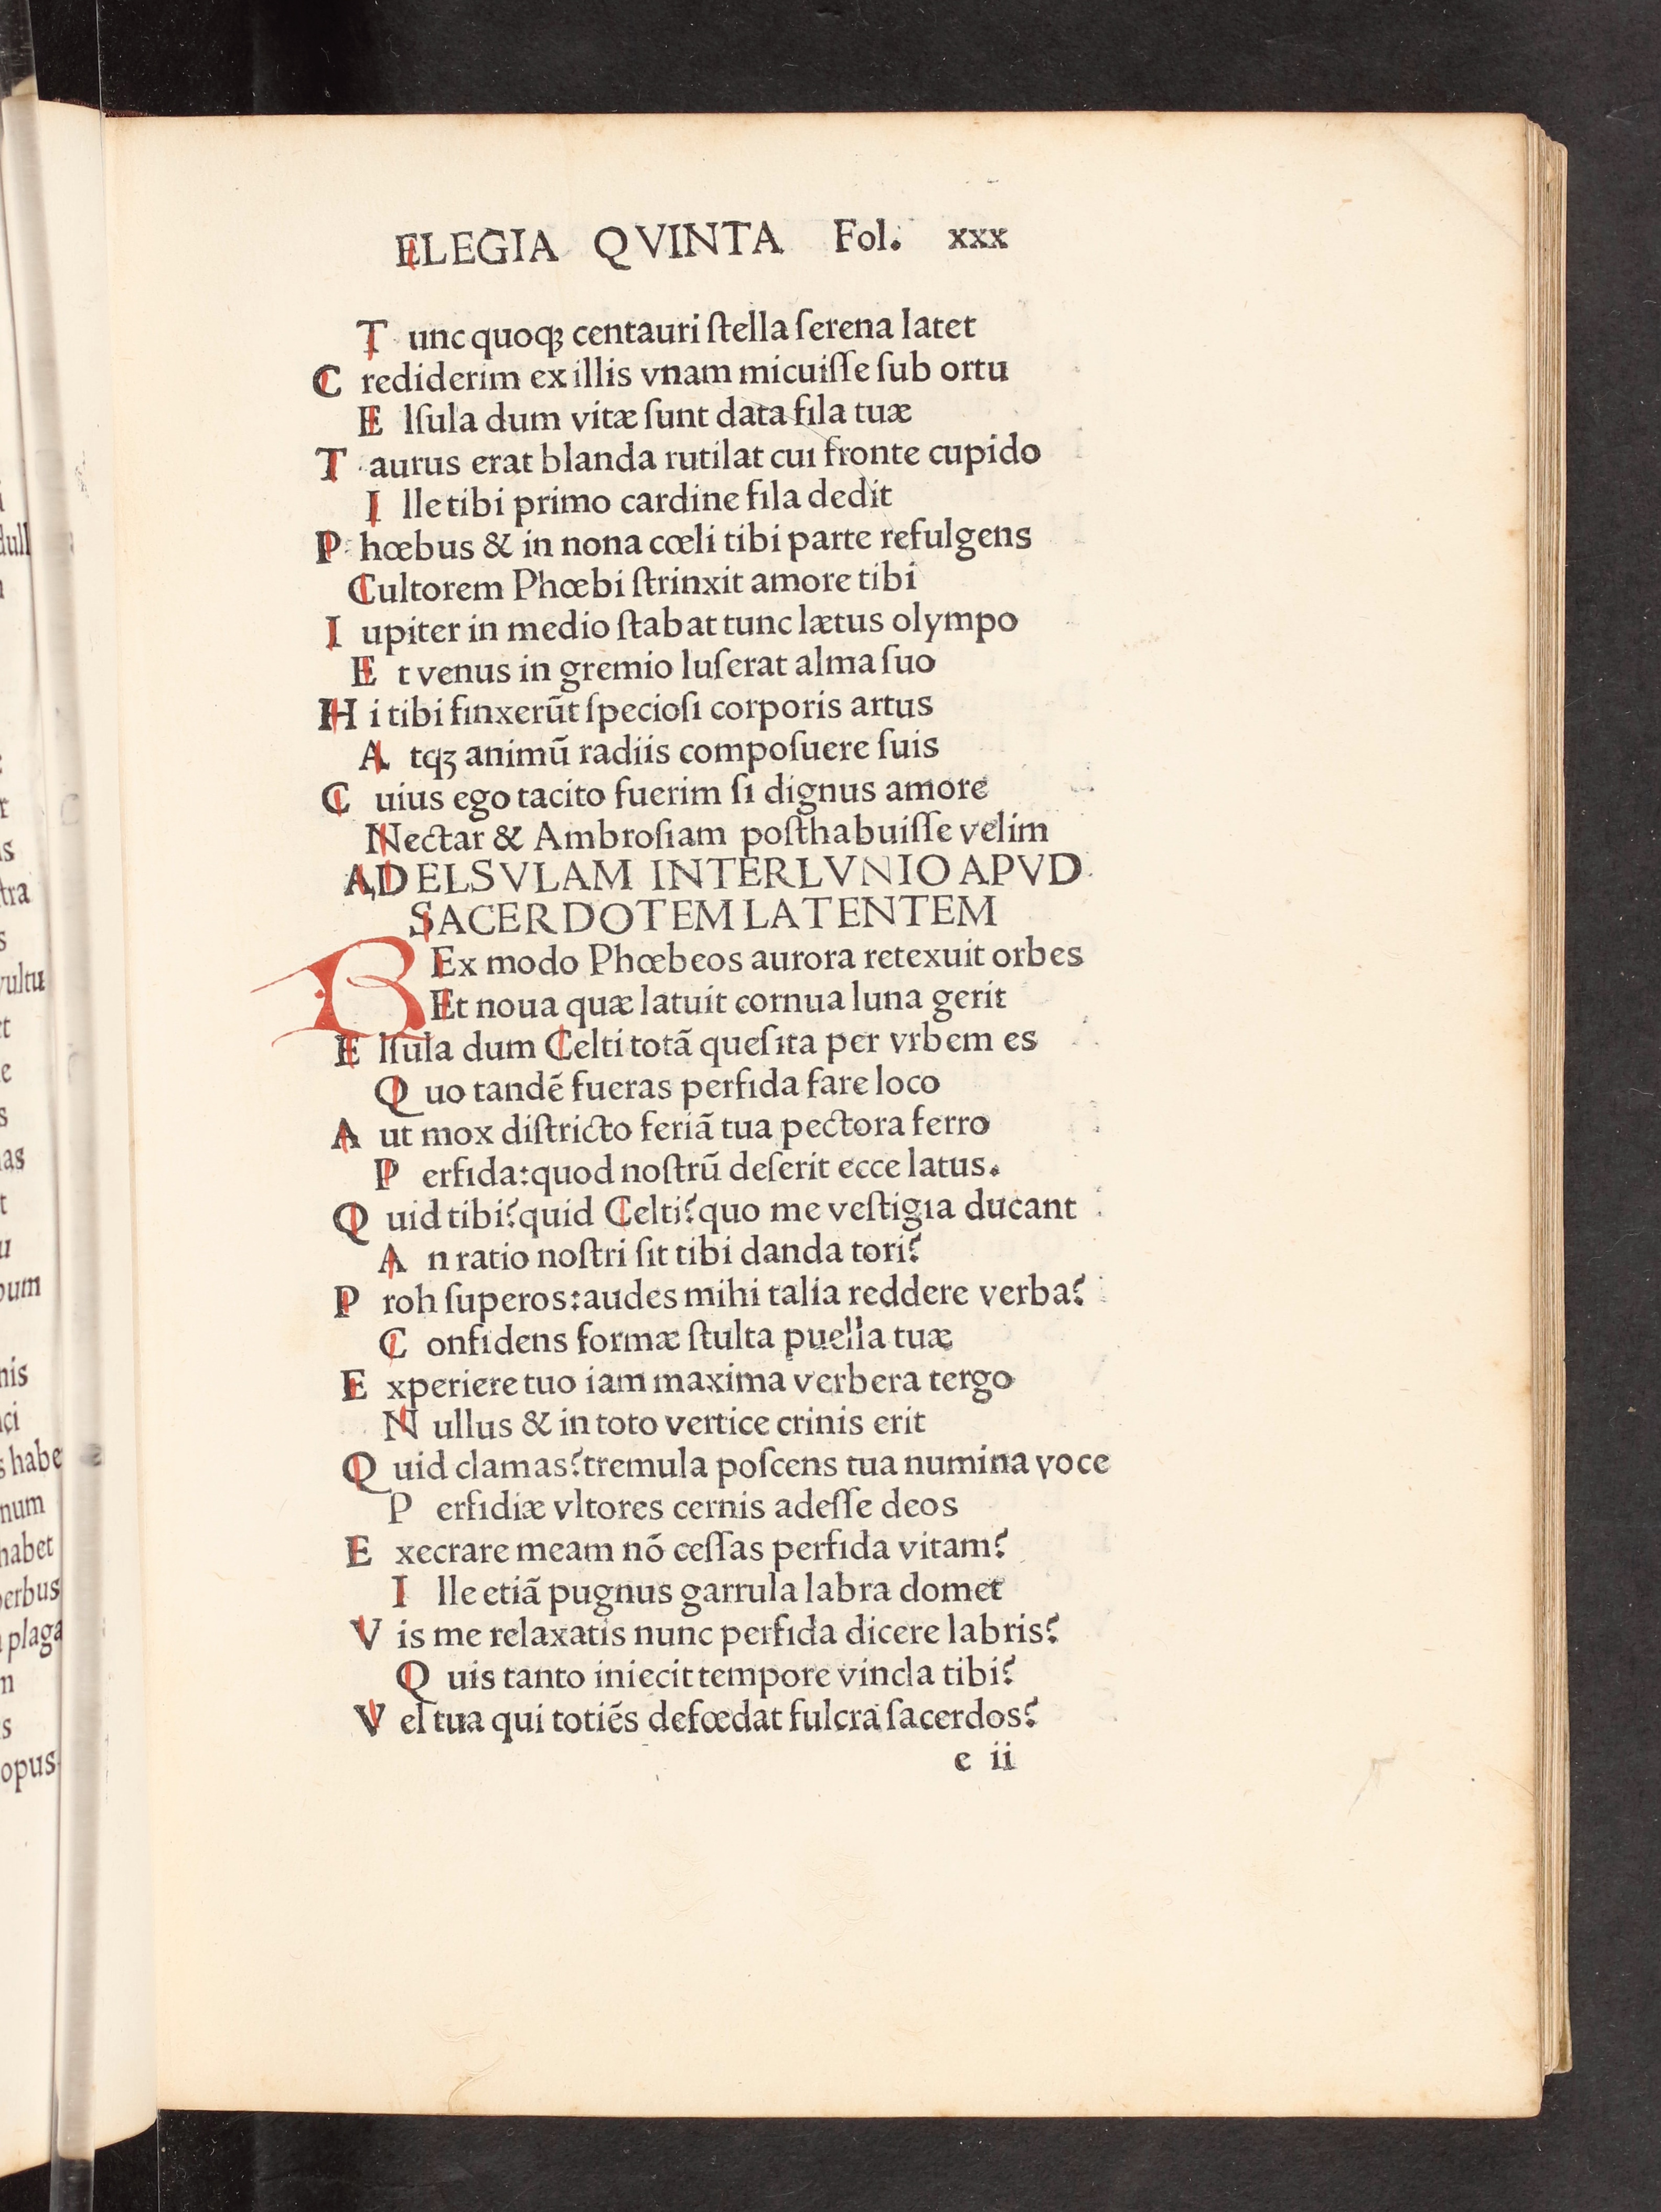 ELEGIA QVINTA Fol. xxx
Tunc quoqꝫ centauri ſtella ſerena latet
Crediderim ex illis vnam micuiſſe ſub ortu
Elſula dum vitæ ſunt data fila tuæ
Taurus erat blanda rutilat cui fronte cupido
Ille tibi primo cardine fila dedit
Phœbus & in nona cœli tibi parte refulgens
Cultorem Phœbi ſtrinxit amore tibi
Iupiter in medio ſtabat tunc lætus olympo
Et venus in gremio luſerat alma ſuo
Hi tibi finxerũt ſpecioſi corporis artus
Atqꝫ animũ radiis compoſuere ſuis
Cuius ego tacito fuerim ſi dignus amore
Nectar & Ambroſiam poſthabuiſſe velim
AD ELSVLAM INTERLVNIO APVD
SACERDOTEM LATENTEM
BEx modo Phœbeos aurora retexuit orbes
Et noua quæ latuit cornua luna gerit
Elſula dum Celti totã queſita per vrbem es
Quo tandẽ fueras perfida fare loco
Aut mox diſtricto feriã tua pectora ferro
Perfida:quod noſtrũ deſerit ecce latus.
Quid tibi?quid Celti?quo me veſtigia ducant
An ratio noſtri ſit tibi danda tori?
Proh ſuperos:audes mihi talia reddere verba?
Confidens formæ ſtulta puella tuæ
Experiere tuo iam maxima verbera tergo
Nullus & in toto vertice crinis erit
Quid clamas?tremula poſcens tua numina voce
Perfidiæ vltores cernis adeſſe deos
Execrare meam nõ ceſſas perfida vitam?
Ille etiã pugnus garrula labra domet
Vis me relaxatis nunc perfida dicere labris?
Quis tanto iniecit tempore vincla tibi?
Vel tua qui totiẽs defœdat fulcra ſacerdos?
e ii